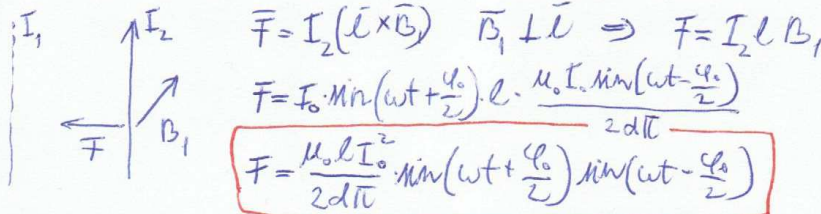 I₁ I₂ F̄ = I₂(l̄ × B̄₁) B̄₁ ⊥ l̄ ⇒ F = I₂ l B₁
F̄ = I₀·sin(ωt + φ₀/2)·l · μ₀ I₀ sin(ωt − φ₀/2) / 2dπ
F̄ B₁
F = μ₀ l I₀² / 2dπ · sin(ωt + φ₀/2) sin(ωt − φ₀/2)